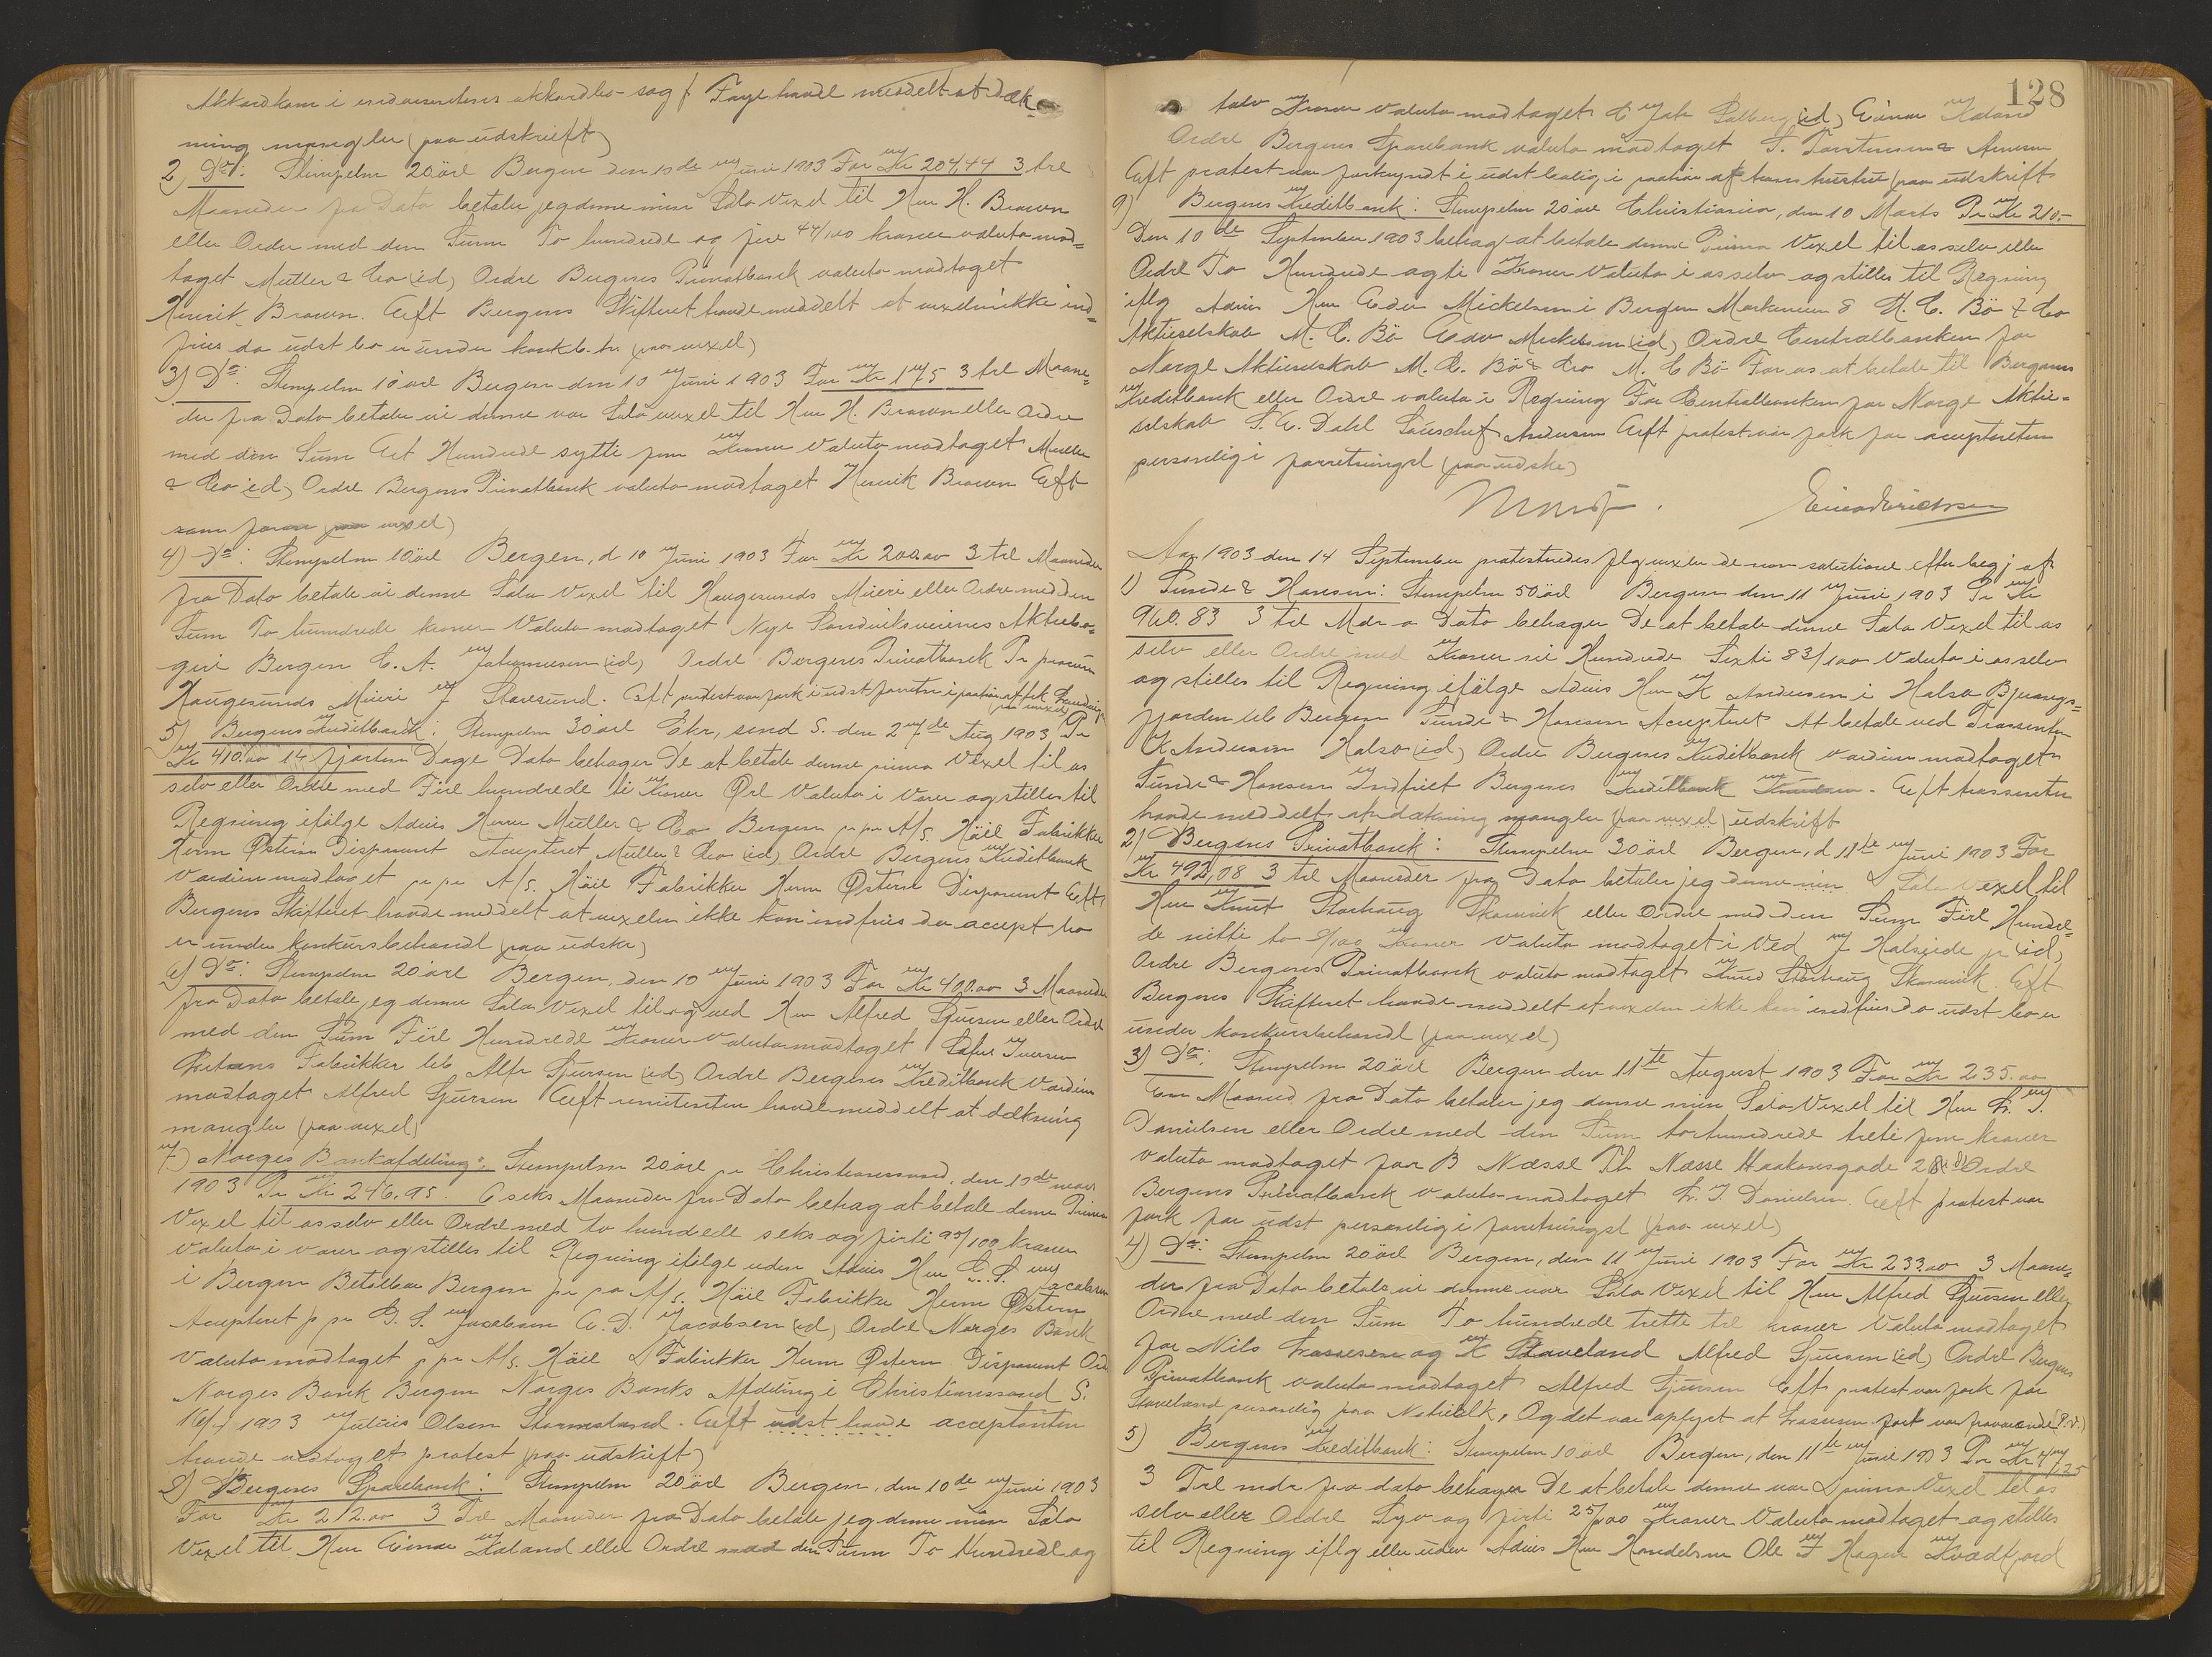 Akkordkom i akkordbo-sag f Faye havde meddelt at dæk
ning mangler (paa udskrift)
2) Do: Stempelm 20 öre Bergen den 10de Juni 1903 For Kr 204,44 3 tre
Maaneder fra Dato betaler jeg denne min Sola Vexel til Herr H. Brown
eller Ordre med den Sum To hundrede og fire 44/100 kroner valuta mod=
taget Müller & Co (id) Ordre Bergens Privatbank valuta modtaget
Henrik Brown. Eft Bergens Skifteret havde meddelt at vexelen ikke ind=
fries da udst bo er under konk.b. (paa vexel)
3) Do: Stempelm 10 öre Bergen den 10 Juni 1903 For Kr 175 3 tre Maane=
der fra Dato betaler vi denne vor Sola vexel til Herr H. Brown eller Ordre
med den Sum Et Hundrede sytti fem Kroner Valuta modtaget Müller
& Co (id) Ordre Bergens Privatbank valuta modtaget Henrik Brown Eft
som foran (paa vexel)
4) Do: Stempelm 10 öre Bergen, d 10 Juni 1903 For Kr 200.00 3 tre Maaneder
fra Dato betale vi denne Sola Vexel til Haugesunds Mieri eller Ordre med den
Sum To hundrede kroner Valuta modtaget Nye Sandviksveiens Aktieba=
geri Bergen C. A. Johannesen (id) Ordre Bergens Privatbank Pr procura
Haugesunds Mieri J Stavsund. Eft protest var fork i udst forretn (paa vexel)
5) Bergens Kreditbank: Stempelm 30 öre Ekr, send S. den 27de Aug 1903 Pr
Kr 410.00 14 fjorten Dage Dato behager De at betale denne prima Vexel til os
selv eller Ordre med Fire hundrede ti Kroner Øre Valuta i Varer og stilles til
Regning ifölge Advis Herrer Müller & Co Bergen pr pr A/S. Höie Fabrikker
Herm Østern Disponent Accepteret Müller & Co (id) Ordre Bergens Kreditbank
Værdien modtaget pr pr A/S. Höie Fabrikker Herm Østern Disponent Eft
Bergens Skifteret havde meddelt at vexelen ikke kan indfries da accept bo
er under konkursbehandl (paa udskr)
6) Do: Stempelm 20 öre Bergen, den 10 Juni 1903 For Kr 400.00 3 Maaneder
fra Dato betale jeg denne Sola Vexel til og ved Herr Alfred Sjursen eller Ordre
med den Sum Fire Hundrede Kroner Valuta modtaget Iversen
Fabrikker Alfr Sjursen (id) Ordre Bergens Kreditbank Værdien
modtaget Alfred Sjursen Eft remittenten havde meddelt at dækning
mangler (paa vexel)
7) Norges Bankafdeling: Stempelm 20 öre pr Christianssand, den 10de mars
1903 Pr Kr 246.95. 6 seks Maaneder fra Dato behag at betale denne Prima
Vexel til os selv eller Ordre med to hundrede seks og firti 95/100 kroner
Valuta i varer og stilles til Regning ifölge uden Advis Herr G. S. Jacobsen
i Bergen Betalbar Bergen pr pr A/S. Höie Fabrikker Herm Østern
Accepteret p pr G. S. Jacobsen A. D. Jacobsen (id) Ordre Norges Bank
Valuta modtaget p pr A/S. Höie Fabrikker Herm Østern Disponent Ord
Norges Bank Bergen Norges Banks Afdeling i Christianssand S.
1903 Julius Olsen Stormsland. Eft udst havde acceptanten
havde vedtaget protest (paa udskrift)
8) Bergens Sparebank: Stempelm 20 öre Bergen, den 10de Juni 1903
For Kr 212.00 3 Tre Maaneder fra Dato betale jeg denne min Sola
Vexel til Herr Einar Kaland eller Ordre med den Sum To Hundrede og
128
tolv Kroner Valuta modtaget C Joh Solberg (id) Einar Kaland
Ordre Bergens Sparebank valuta modtaget S. Torstensen & Amren
Eft protest var forkyndt i udst bolig i paahør af hans hustru (paa udskrift
9) Bergens Kreditbank: Stempelm 20 öre Christiania, den 10 Marts Pr Kr 210.-
Den 10de September 1903 behag at betale denne Prima Vexel til os selv eller
Ordre To Hundrede og ti Kroner Valuta i os selv og stilles til Regning
iflg Advis Herr Edv Mickelsen i Bergen Markeveien 8 M. C. Bö & Co
Aktieselskab M. C. Bö Edv Mickelsen (id) Ordre Centralbanken for
Norge Aktieselskab M. C. Bö & Co M. C Bö For os at betale til Bergens
Kreditbank eller Ordre valuta i Regning For Centralbanken for Norge Aktie=
selskab S. E. Dahl Andersen Eft protest var fork for acceptanten
personlig i forretningsl (paa udskr)
Aar 1903 den 14 September protesteredes flg vexler de non solutione efter begj af
1) Sunde & Hansen: Stempelm 50 öre Bergen den 11 Juni 1903 Pr Kr
960.83 3 tre Mdr a Dato behager De at betale denne Sola Vexel til os
selv eller Ordre med Kroner ni Hundrede Sexti 83/100 Valuta i os selv
og stilles til Regning ifölge Advis Herr K Andersen i Halsø Bjørangs=
fjorden Bergen Sunde & Hansen Accepteret At betale ved Trassenten
K Andersen Halsø (id) Ordre Bergens Kreditbank værdien modtaget
Sunde & Hansen Indfriet Bergens Kreditbank. Eft trassenten
havde meddelt at dækning mangler (paa vexel) udskrift
2) Bergens Privatbank: Stempelm 30 öre Bergen, d 11te Juni 1903 For
Kr 492,08 3 tre Maaneder fra Dato betaler jeg denne min Sola Vexel til
Herr Knut Storhaug Skonevik eller Ordre med den Sum Fire Hundre=
de nitti to 8/100 Kroner valuta modtaget i Ved J Halleide jr (id)
Ordre Bergens Privatbank valuta modtaget Knud Storhaug Skonevik Eft
Bergens Skifteret havde meddelt at vexelen ikke kan indfries da udst bo er
under konkursbehandl (paa vexel)
3) Do: Stempelm 20 öre Bergen den 11te August 1903 For Kr 235.00
En Maaned fra Dato betaler jeg denne min Sola Vexel til Herr L. J.
Danielsen eller Ordre med den Sum tohundrede treti fem kroner
valuta modtaget for B Næsse Th Næsse Haakonsgade 28 (id) Ordre
Bergens Privatbank valuta modtaget L. J. Danielsen Eft protest var
fork for udst personlig i forretningsl (paa vexel)
4) Do: Stempelm 20 öre Bergen, den 11 Juni 1903 For Kr 233.00 3 Maane=
der fra Dato betale vi denne vor Sola Vexel til Herr Alfred Sjursen eller
Ordre med den Sum To hundrede tretti tre kroner Valuta modtaget
for Nils Lassesen og K Staveland Alfred Sjursen (id) Ordre Bergens
Privatbank valuta modtaget Alfred Sjursen Eft protest var fork for
Staveland personlig paa Og det var oplyst at Lassesen var fraværende (P.v.)
5) Bergens Kreditbank: Stempelm 10 öre Bergen, den 11te Juni 1903 Pr Kr 47,25
3 Tre mdr fra dato behager De at betale denne vor prima Vexel til os
selv eller Ordre Syv og firti 25/100 Kroner Valuta modtaget og stilles
til Regning iflg eller uden Advis Herr Handelsm Ole J Hagen Kvædfjord